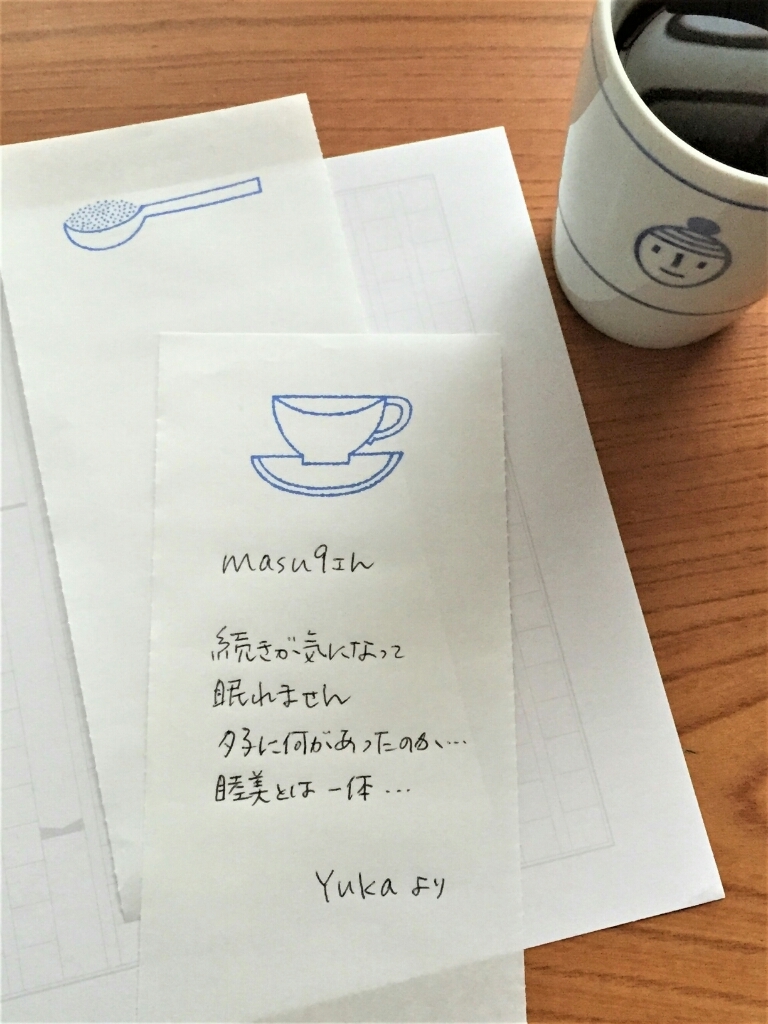 masu9ェん
続きが気になって
眠れません
夕子に何があったのか、…
睦美とは一体…
Yukaより